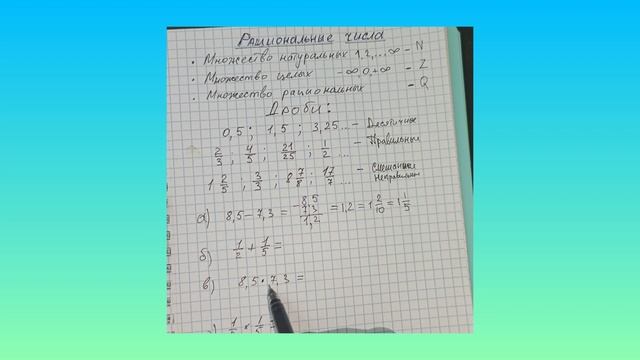 Рациональные числа
• Множество натуральных 1,2,...∞ - N
• Множество целых -∞,0,+∞ - Z
• Множество рациональных - Q
Дроби:
0,5; 1,5; 3,25... - Десятичные
2/3; 4/5; 21/25; 1/2 ... - Правильные
1 2/5; 3/3; 8 7/8; 17/7 ... - Смешанные Неправильные
а) 8,5 - 7,3 = -8,5 7,3 1,2 = 1,2 = 1 2/10 = 1 1/5
б) 1/2 + 1/5 =
в) 8,5 • 7,3 =